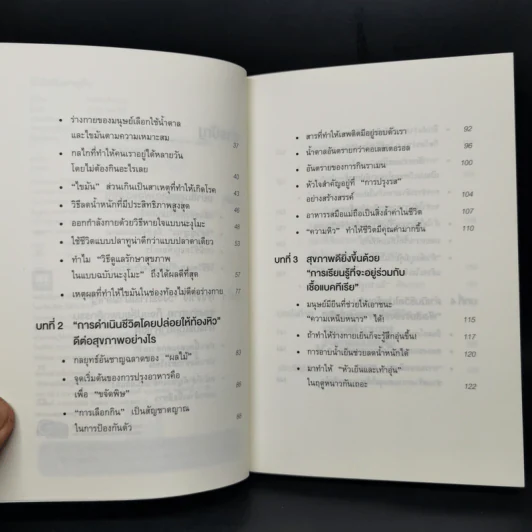 • ร่างกายของมนุษย์เลือกใช้น้ำตาล
และไขมันตามความเหมาะสม 37
• กลไกที่ทำให้คนเราอยู่ได้หลายวัน
โดยไม่ต้องกินอะไรเลย 40
• "ไขมัน" ส่วนเกินเป็นสาเหตุที่ทำให้เกิดโรค 43
• วิธีลดน้ำหนักที่มีประสิทธิภาพสูงสุด
• ออกกำลังกายด้วยวิธีหายใจแบบนะงุโมะ
• ใช้ชีวิตแบบปลาทูน่าดีกว่าแบบปลาตาเดียว 53
• ทำไม "วิธีดูแลรักษาสุขภาพ
ในแบบฉบับนะงุโมะ" ถึงได้ผลดีที่สุด 57
• เหตุผลที่ทำให้ไขมันในช่องท้องไม่ดีต่อร่างกาย 71
บทที่ 2 "การดำเนินชีวิตโดยปล่อยให้ท้องหิว"
ดีต่อสุขภาพอย่างไร
• กลยุทธ์อันชาญฉลาดของ "ผลไม้"
• จุดเริ่มต้นของการปรุงอาหารคือ
เพื่อ "ขจัดพิษ"
• "การเลือกกิน" เป็นสัญชาตญาณ
ในการป้องกันตัว
• สารที่ทำให้เสพติดมีอยู่รอบตัวเรา 92
• น้ำตาลอันตรายกว่าคอเลสเตอรอล 96
• อันตรายของการกินราเมน 100
• หัวใจสำคัญอยู่ที่ "การปรุงรส"
อย่างสร้างสรรค์ 104
• อาหารรสมือแม่ถือเป็นสิ่งล้ำค่าในชีวิต 107
• "ความหิว" ทำให้ชีวิตมีคุณค่ามากขึ้น 110
บทที่ 3 สุขภาพดียิ่งขึ้นด้วย
"การเรียนรู้ที่จะอยู่ร่วมกับ
เชื้อแบคทีเรีย"
• มนุษย์มียีนที่ช่วยให้เอาชนะ
"ความเหน็บหนาว" ได้! 115
• ถ้าทำให้ร่างกายเย็นก็จะรู้สึกอุ่นขึ้น! 117
• การอาบน้ำเย็นช่วยลดน้ำหนักได้ 120
• มาทำให้ "หัวเย็นและเท้าอุ่น"
ในฤดูหนาวกันเถอะ 122